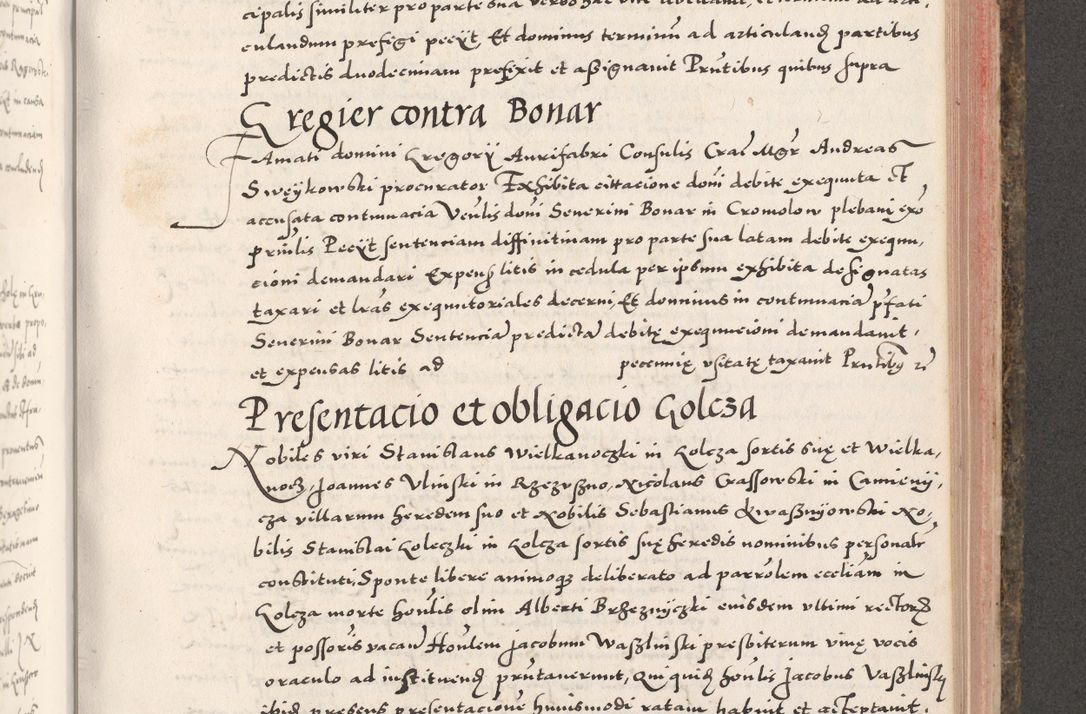 cipalis similiter pro parte sua verbo
culandum prefigi pecyt Et dominus terminum ad articuland partibus
predictis duodecimam prefixit et assignavit Pruntibus quibus supra
Gregier contra Bonar
Famati domini Gregory Aurifabri Consulis Crac Mgr Andreas
Sweykowski procurator Exhibita cittacione domi debite exequuta et
accusata contumacia Venlis domi Severini Bonar in Cromolow plebani exo
prinlis Pecyt sentenciam diffinitinam pro parte sua latam debite exequu,
cioni demandari Expens litis in cedula per ipsum exhibita designatas
taxari et lras exequutoriales decerni, Et dominus in contumacia pfati
Severini Bonar Sentencia predicta debitę exequucioni demandavit,
et expensas litis ad pecunię usitatę taxavit Pruntibus
Presentacio et obligacio Golcza
Nobiles viri Stanislaus Wielkanoczki in Golcza sortis suę et Wielka,
nocz, Joannes Ulinski in Rzezuszno, Nicolaus Crassowski in Camieniy,
cza villarum heredem suo et Nobilis Sebastianus Kwasznijowski No,
bilis Stanislai Goleczki in Golcza sortis suę heredis nominibus personalr
constituti, Sponte libere animoqz deliberato ad parrolem eccliam in
Golcza morte honlis olim Alberti Brzezniczki euisdem ultimi rectoris
et possoris vacan Honlem Jacobum Waszlinski presbiterum vinę vocis
oraculo ad instituend pruntaverunt, Qui quid honlis Jacobus Vaszlinsky
ibid presens presentacione huiusmodi ratam habuit et acceptavit.